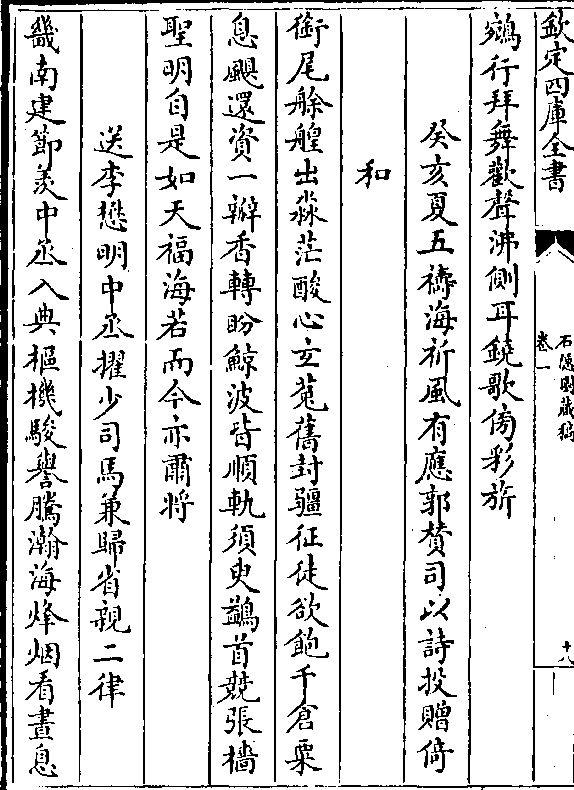 欽定四庫全書
石隱園藏稿
卷一
十八
鵷行拜舞歡聲沸側耳鐃歌傍彩旂
癸亥夏五禱海祈風有應郭贊司以詩投贈倚
和
銜尾艅艎出淼茫酸心玄菟舊封疆征徒欲飽千倉粟
息颶還資一瓣香轉盼鯨波皆順軌須臾鷁首競張檣
聖明自是如天福海若而今亦肅將
送李懋明中丞擢少司馬兼歸省親二律
畿南建節羨中丞入典樞機駿譽騰瀚海烽烟看晝息